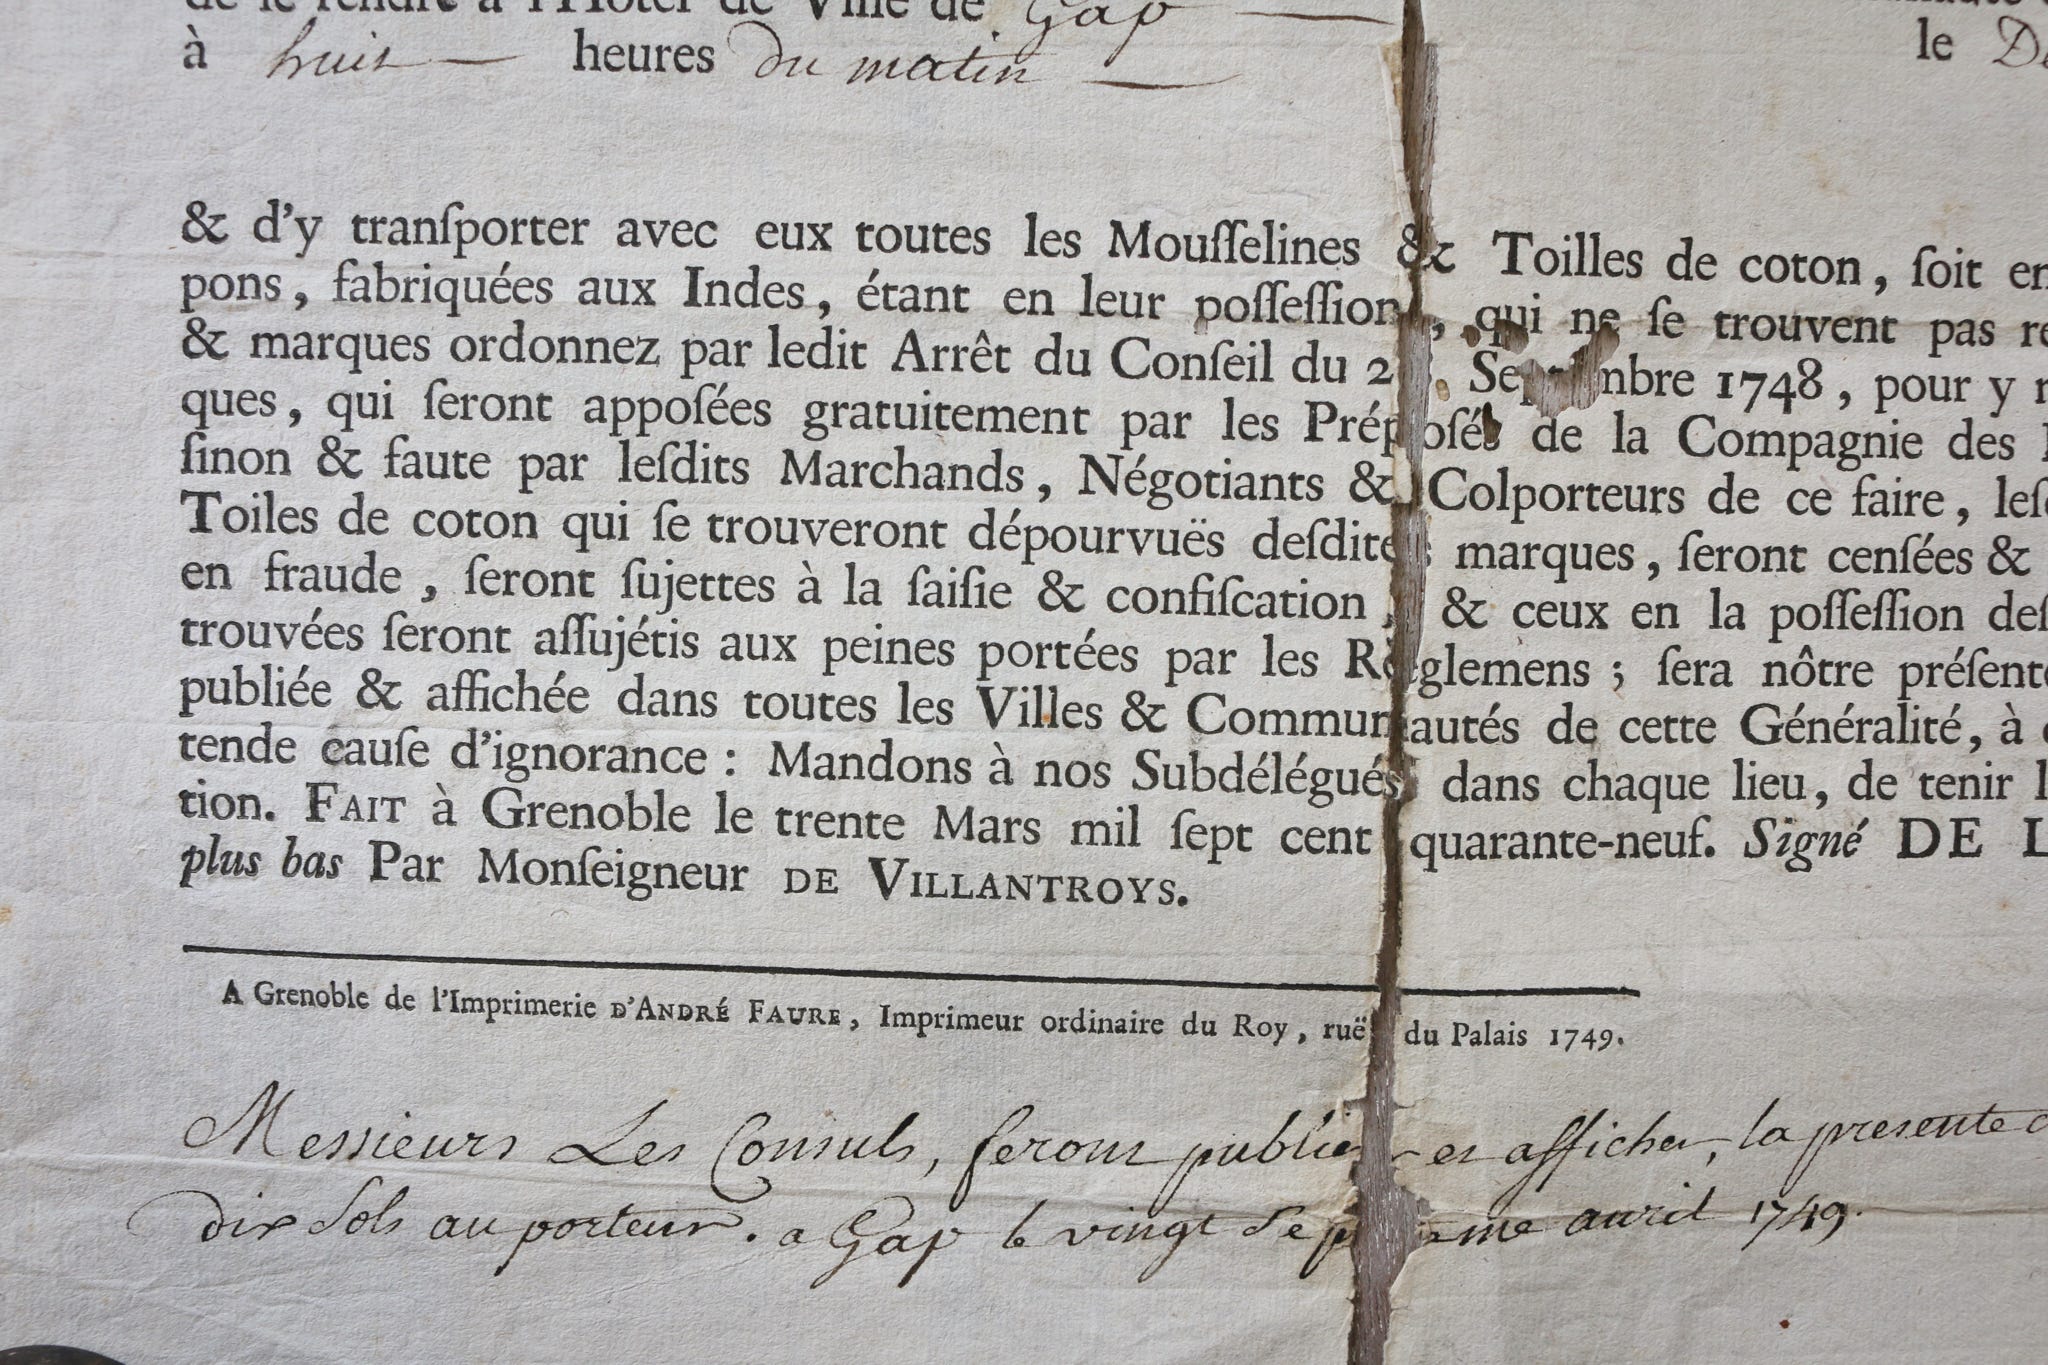 de se rendre à l'Hôtel de Ville de Gap
à huit heures du matin le
& d'y tranſporter avec eux toutes les Mouſſelines & Toilles de coton, ſoit en
pons, fabriquées aux Indes, étant en leur poſſeſſion, qui ne ſe trouvent pas
& marques ordonnez par ledit Arrêt du Conſeil du Septembre 1748, pour y
ques, qui ſeront appoſées gratuitement par les Prépoſés de la Compagnie des
ſinon & faute par leſdits Marchands, Négotiants & Colporteurs de ce faire, leſ
Toiles de coton qui ſe trouveront dépourvuës deſdites marques, ſeront cenſées &
en fraude, ſeront ſujettes à la ſaiſie & confiſcation, & ceux en la poſſeſſion deſ
trouvées ſeront aſſujétis aux peines portées par les Règlemens; ſera nôtre préſente
publiée & affichée dans toutes les Villes & Communautés de cette Généralité, à
tende cauſe d'ignorance: Mandons à nos Subdélégués dans chaque lieu, de tenir
tion. FAIT à Grenoble le trente Mars mil ſept cent quarante-neuf. Signé DE L
plus bas Par Monſeigneur DE VILLANTROYS.
A Grenoble de l'Imprimerie D'ANDRÉ FAURE, Imprimeur ordinaire du Roy, ruë du Palais 1749.
Messieurs Les Consuls, feront publier et afficher, la presente
dix sols au porteur. a Gap le vingt septieme avril 1749.